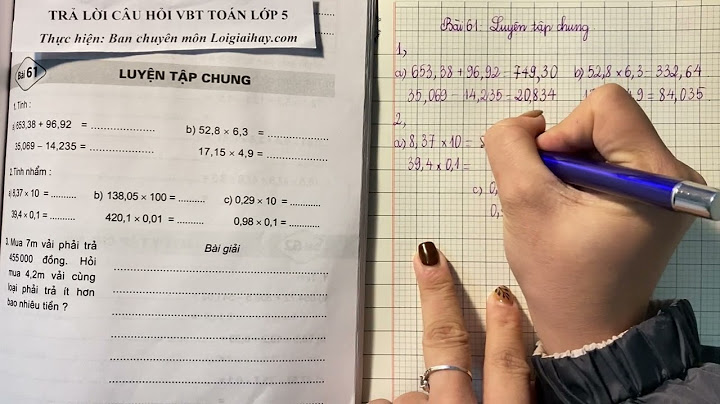 TRẢ LỜI CÂU HỎI VBT TOÁN LỚP 5
Thực hiện: Ban chuyên môn Loigiaihay.com
Bài 61
LUYỆN TẬP CHUNG
1. Tính :
a) 653,38 + 96,92 = ..................
b) 52,8 × 6,3 = ..................
35,069 – 14,235 = ..................
17,15 × 4,9 = ..................
2. Tính nhẩm :
a) 8,37 × 10 = .......... b) 138,05 × 100 = .......... c) 0,29 × 10 = ..........
39,4 × 0,1 = .......... 420,1 × 0,01 = .......... 0,98 × 0,1 = ..........
3. Mua 7m vải phải trả
455 000 đồng. Hỏi
mua 4,2m vải cùng
loại phải trả ít hơn
bao nhiêu tiền ?
Bài giải
Bài 61: Luyện tập chung
1,
a) 653,38 + 96,92 = 749,30 b) 52,8 × 6,3 = 332,64
35,069 – 14,235 = 20,834
4,9 = 84,035
2,
a) 8,37 × 10 =
39,4 × 0,1 =
c) 0,
0,